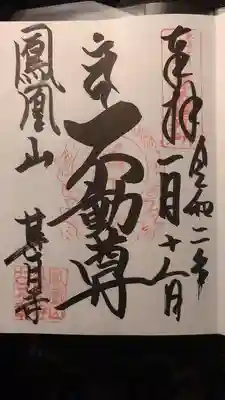 奉拝
令和二年
一月十八日
不動尊
鳳凰山 甚目寺